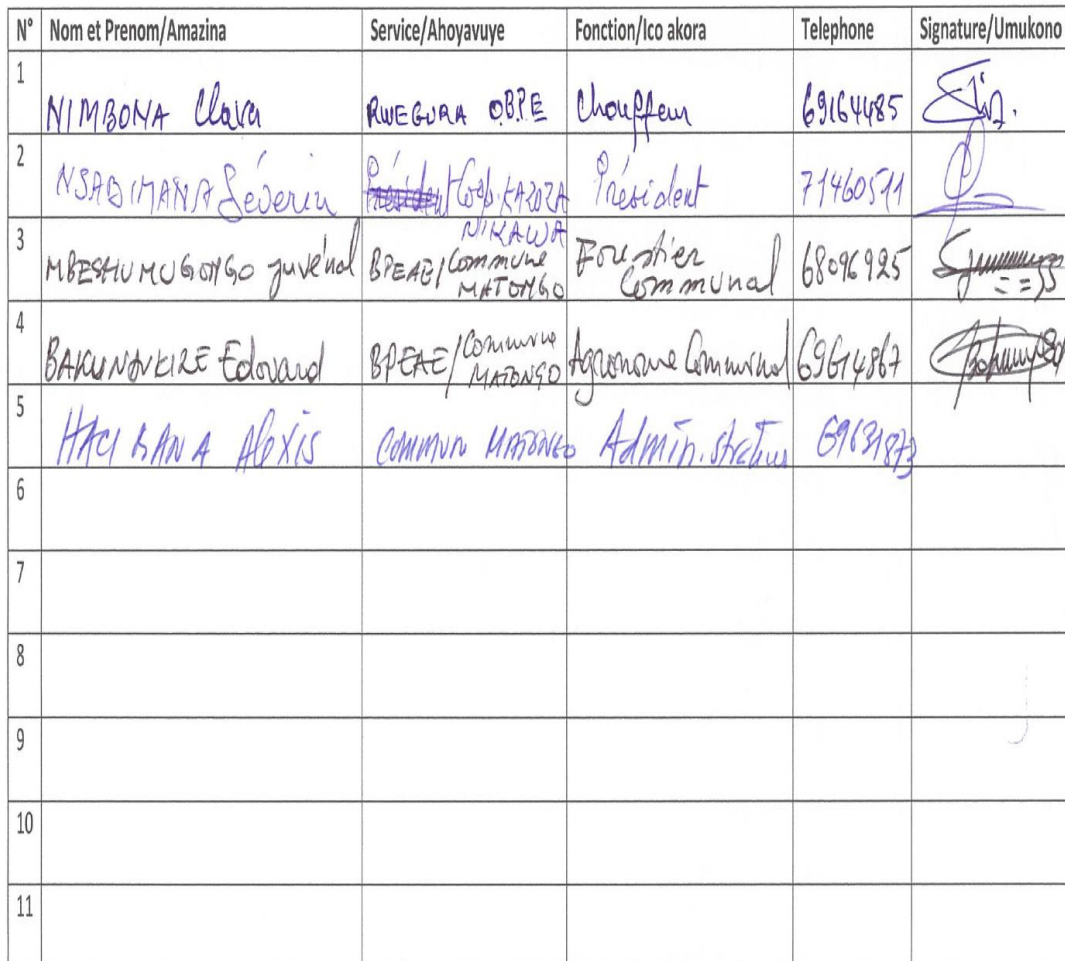 N° Nom et Prenom/Amazina Service/Ahoyavuye Fonction/Ico akora Telephone Signature/Umukono
1 NIMBONA Clara RWEGURA OBPE Chauffeur 69164485
2 NSABIMANA Séverin Président Coop. KAZOZA NIKAWA Président 71460511
3 MBESHUMUGONGO Juvénal BPEAE/Commune MATONGO Forestier Communal 68096925
4 BAKUNDUKIZE Edouard BPEAE/Commune MATONGO Agronome Communal 69614867
5 Alexis COMMUN MATONGO 69631873
6
7
8
9
10
11